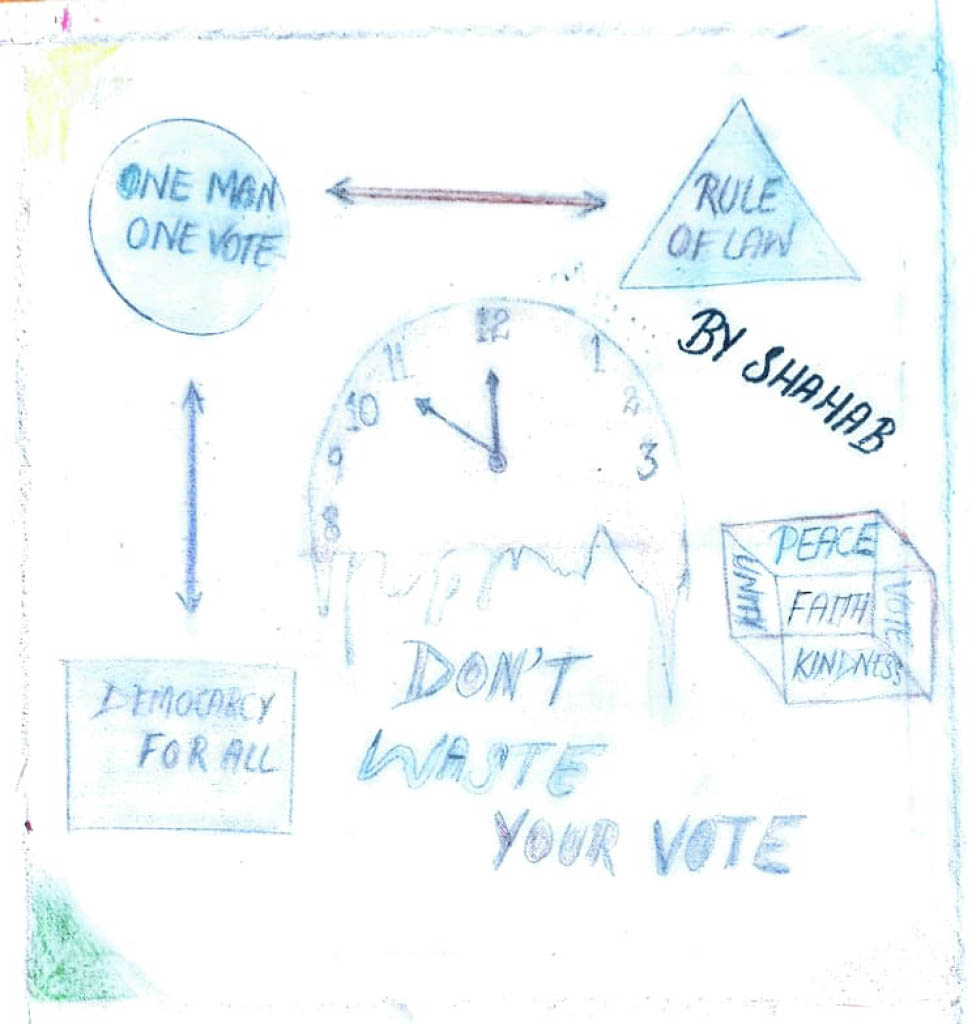 ONE MAN
ONE VOTE
RULE
OF LAW
BY SHAHAB
12
11
1
10
2
9
3
8
PEACE
UNITY
FAITH
VOTE
KINDNESS
DEMOCARCY
FOR ALL
DON'T
WASTE
YOUR VOTE